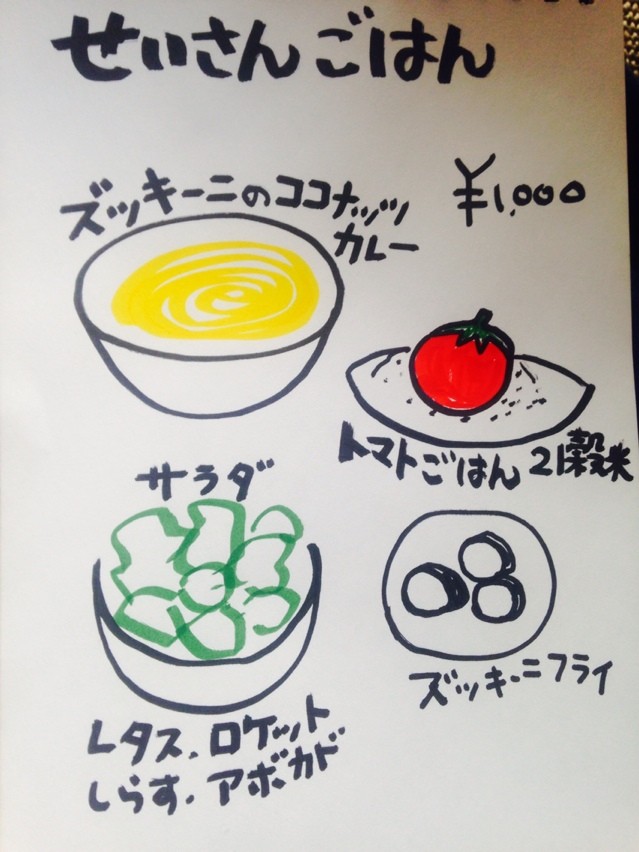 せいさんごはん
ズッキーニのココナッツ
カレー
¥1,000
トマトごはん 21穀米
サラダ
ズッキーニフライ
レタス、ロケット
しらす、アボカド